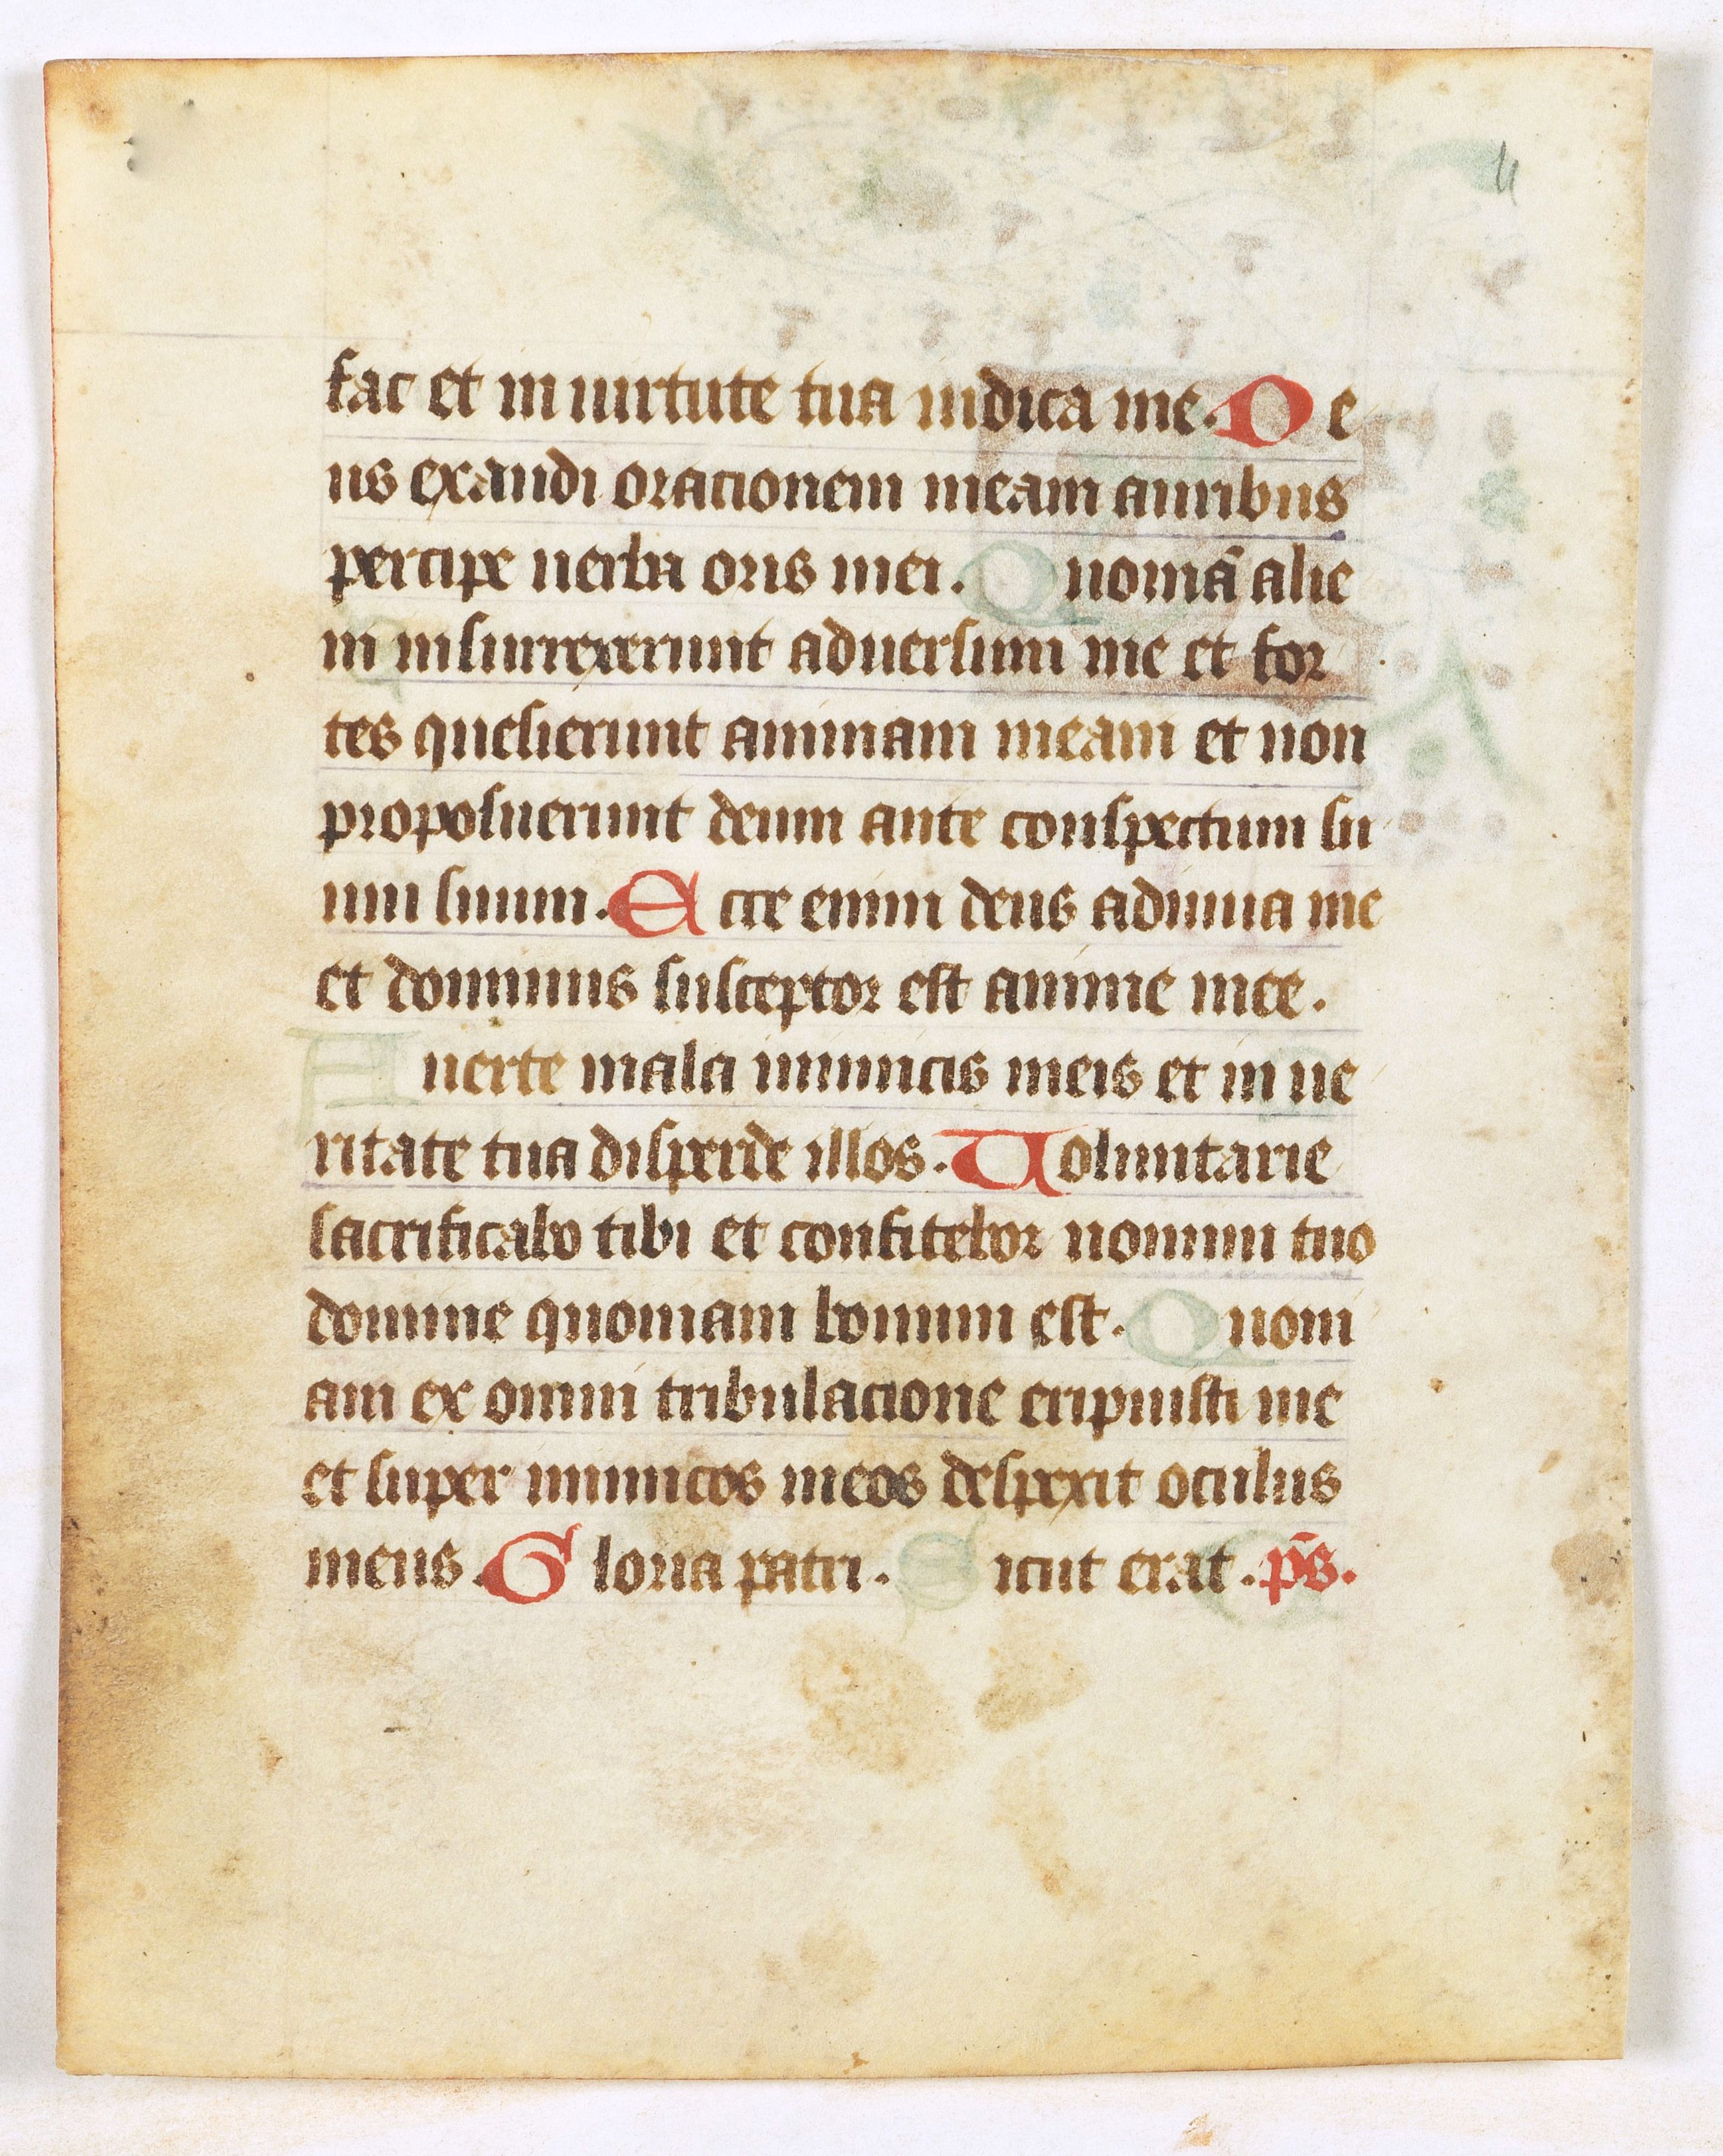 fac et in uirtute tua iudica me. De
us exaudi oracionem meam auribus
percipe uerba oris mei. Quoniā alie
ni insurrexerunt aduersum me et for
tes quesierunt animam meam et non
proposuerunt deum ante conspectum su
um suum. Ecce enim deus adiuua me
et dominus susceptor est anime mee.
Auerte mala inimicis meis et in ue
ritate tua disperde illos. Uoluntarie
sacrificabo tibi et confitebor nomini tuo
domine quoniam bonum est. Quoni
am ex omni tribulacione eripuisti me
et super inimicos meos despexit oculus
meus. Gloria patri. Sicut erat. p̄s.